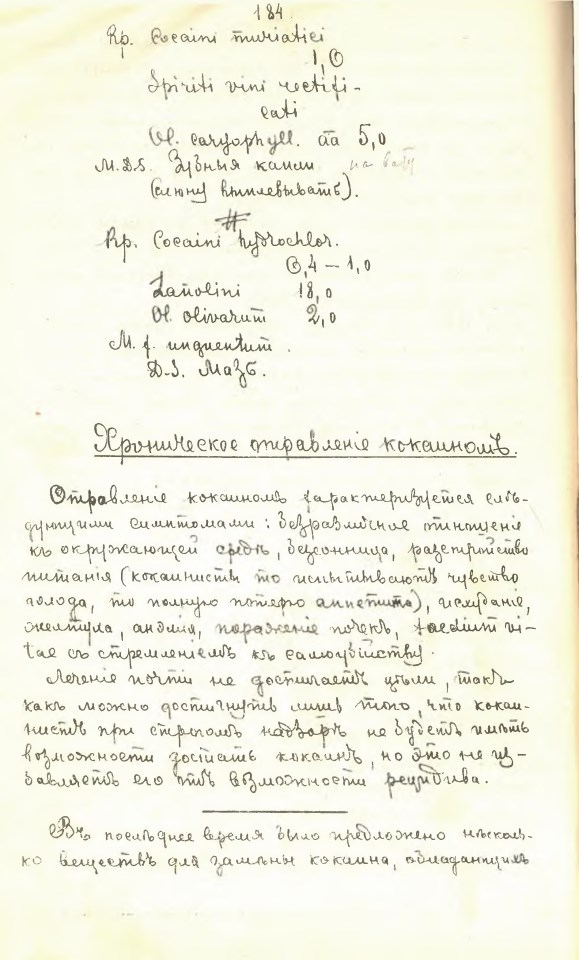 184
Rp. Cocaini muriatici
1,0
Spiriti vini rectifi-
cati
Ol. caryophyll. āā 5,0
M.D.S. Зубныя капли на вату
(слюну выплевывать).
#
Rp. Cocaini hydrochlor.
0,4 – 1,0
Lanolini 18,0
Ol. olivarum 2,0
M. f. unguentum.
D.S. Мазь.
Хроническое отравленіе кокаиномъ.
Отравленіе кокаиномъ характеризуется слѣ-
дующими симптомами: безразличное отношеніе
къ окружающей средѣ, безсонница, разстройство
питанія (кокаинисты то испытываютъ чувство
голода, то полную потерю аппетита), исхуданіе,
желтуха, анэмія, пораженіе почекъ, taedium vi-
tae съ стремленіемъ къ самоубійству.
Леченіе почти не достигаетъ цѣли, такъ
какъ можно достигнуть лишь того, что кокаи-
нистъ при строгомъ надзорѣ не будетъ имѣть
возможности достать кокаинъ, но это не из-
бавляетъ его отъ возможности рецидива.
Въ послѣднее время было предложено нѣсколь-
ко веществъ для замѣны кокаина, обладающихъ